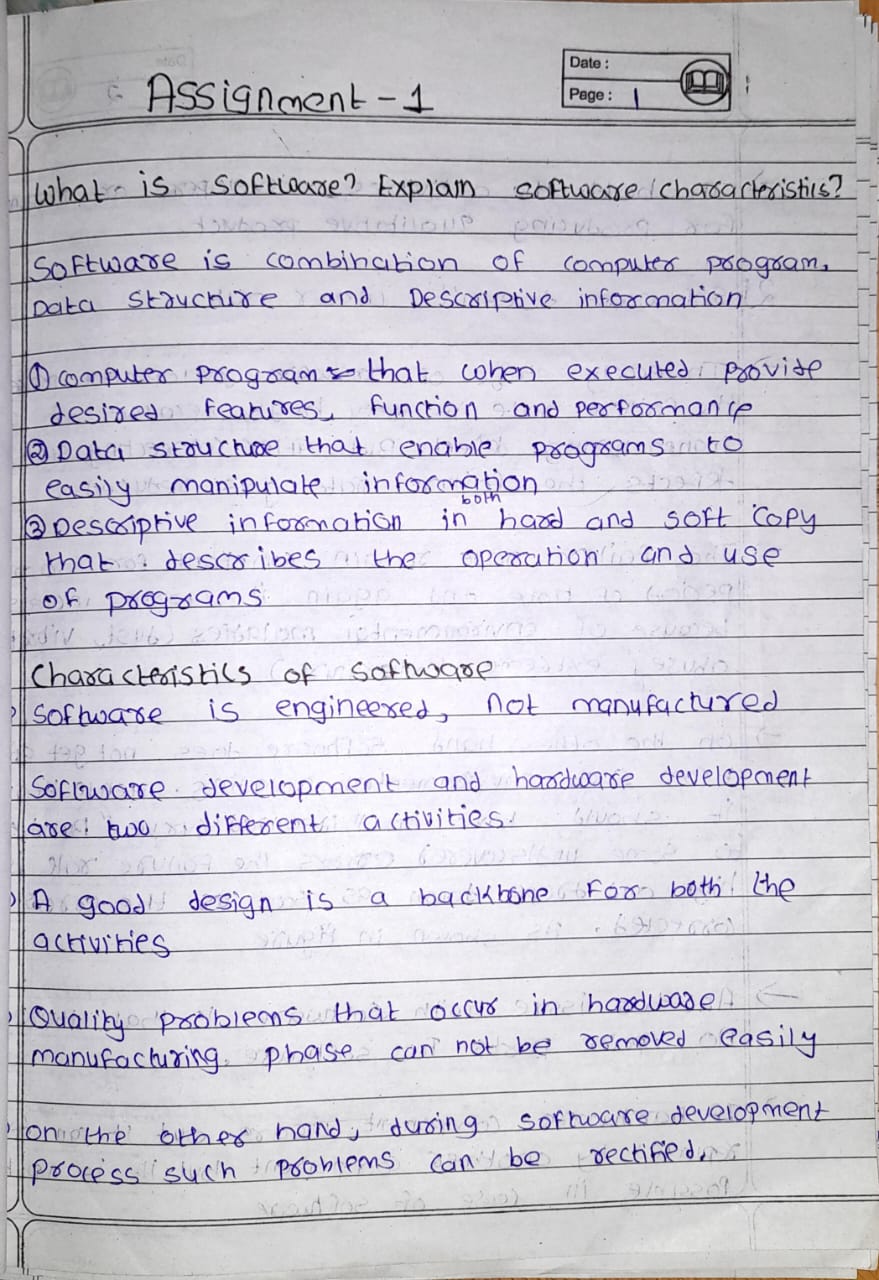 Date :
Assignment - 1
Page : 1
What is Software? Explain software characteristics?
Software is combination of computer program,
Data structure and Descriptive information
① computer program :- that when executed provide
desired features, function and performance
② Data structure that enable programs to
easily manipulate information
both
③ Descriptive information in hard and soft copy
that describes the operation and use
of programs
Characteristics of Software
Software is engineered, not manufactured
Software development and hardware development
are two different activities.
A good design is a backbone for both the
activities
Quality problems that occur in hardware
manufacturing phase can not be removed easily
on the other hand, during software development
process such problems can be rectified.